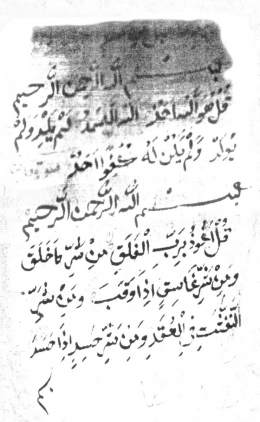 بسم الله الرحمن الرحيم
قُلْ هُوَ اللَّهُ أَحَدٌ اللَّهُ الصَّمَدُ لَمْ يَلِدْ وَلَمْ
يُولَدْ وَلَمْ يَكُنْ لَهُ كُفُوًا أَحَدٌ
بسم الله الرَّحْمٰنِ الرَّحِيمِ
قُلْ أَعُوذُ بِرَبِّ الْفَلَقِ مِنْ شَرِّ مَا خَلَقَ
وَمِنْ شَرِّ غَاسِقٍ إِذَا وَقَبَ وَمِنْ شَرِّ
النَّفّٰثٰتِ فِي الْعُقَدِ وَمِنْ شَرِّ حَاسِدٍ إِذَا حَسَدَ